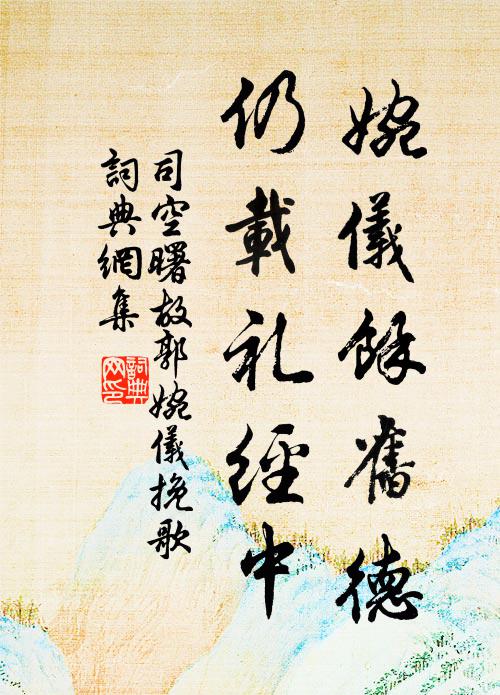 婉儀餘舊德
仍載礼經中
司空曙故郭婉儀挽歌
詞典網集
詞典網印